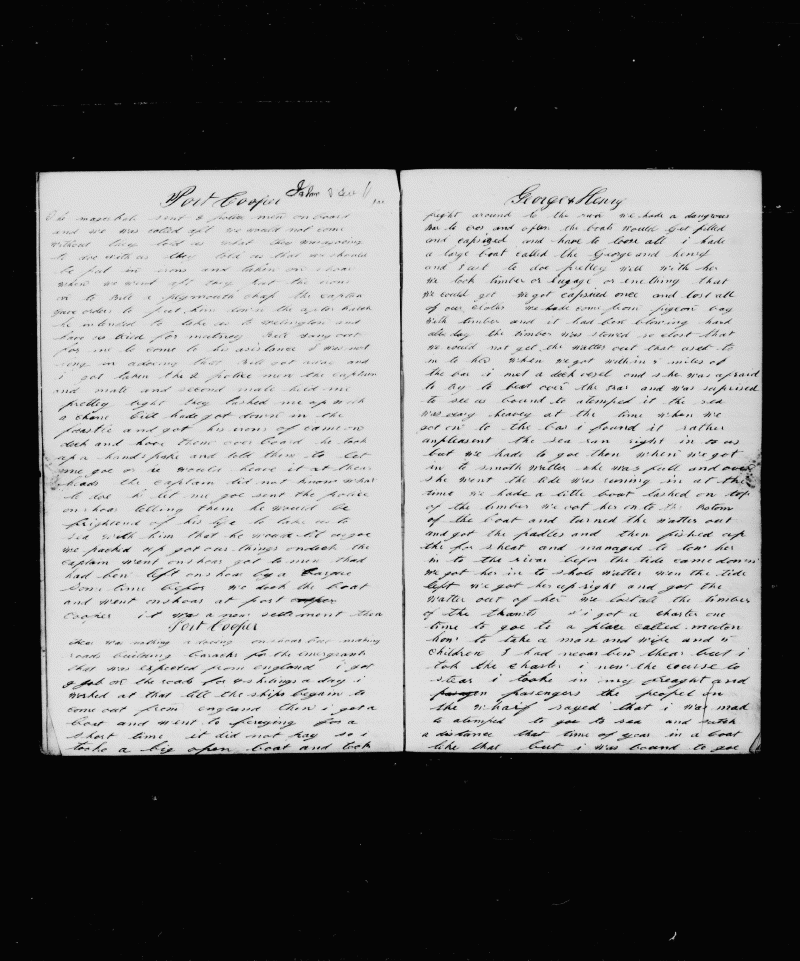 Port Cooper
the magestrate sent 2 police men on board
and we was caled aft we would not come
without they told us what they was going
to doe with us they told us that we should
be put in irons and taken on shoar
when we went aft they put the irons
on to Bill a plymouth chap the captan
gave orders to put him down the after hatch
he intended to take us to Welington and
have us tried for mutiny Bill sang out
for me to come to his asistance I was not
long in a doing that Bill got and
i got taken the 2 police men the captain
and mate and second mate held me
pretty tight they lashed me up with
a chane Bill hade got down in the
and got his irons of came on
deck and hove them over board he took
up a handspike and told them to let
me goe or he would heave it at thear
heads the captain did not know what
to doe he let me goe sent the police
on shoar telling them he would be
frightend of his life to take us to
sea with him that he would let us goe
we packed up got our things on deck the
captain went on shoar got to men that
had ben left on shoar by a Barque
som time befor we took the boat
and went on shoar at port
Cooper it was a new setlement thea
Port Cooper
thear was nothing a doing on shoar but making
roads building Baracks for the emergrants
that was expected from england i got
a job on the roads for 3 shilings a day i
worked at that till the ships began to
come out from england then i got a
boat and went to fereying for a
short time it did not pay so i
tooke a big open boat and took
George & Henry
freght around to the river we hade a dangrous
bar to cros and often the boats would get filled
and capsized and have to loose all i hade
a large boat called the George and henry
and i ust to doe pretty well with her
we took timber or lugage or enething that
we could get we got capsized once and lost all
of our cloths we hade come from pigeon bay
with timber and it had ben blowing hard
all day the timber was stowed so close that
we could not get the watter out that used to
in to her when we got within 2 miles of
the bar i met a deck vesel and she was afraid
to try to beat over the bar and was surprised
to see us bound to atempted it the sea
was very heavey at the time when we
got on to the bar i found it rather
unpleasent the sea ran right in to us
but we hade to goe then when we got
in to smoth watter she was full and over
she went the tide was runing in at the
time we hade a little boat lashed on top
of the timber we cot her on to the botom
of the boat and turned the watter out
and got the padles and then fished up
the for sheat and managed to tow her
in to the river befor the tide came down
we got her in to shole watter when the tide
left we got her up right and got the
watter out of her we lost all the timber
of the thaints i got a charter one
time to goe to a place called
how to take a man and wife and 5
children I had never ben thear but i
tok the charter i new the course to
stear i tooke in my freaght and
pasengers the peopel on
the wharf sayed that i was mad
to atemped to goe to sea and such
a distance that time of year in a boat
like that but i was bound to goe